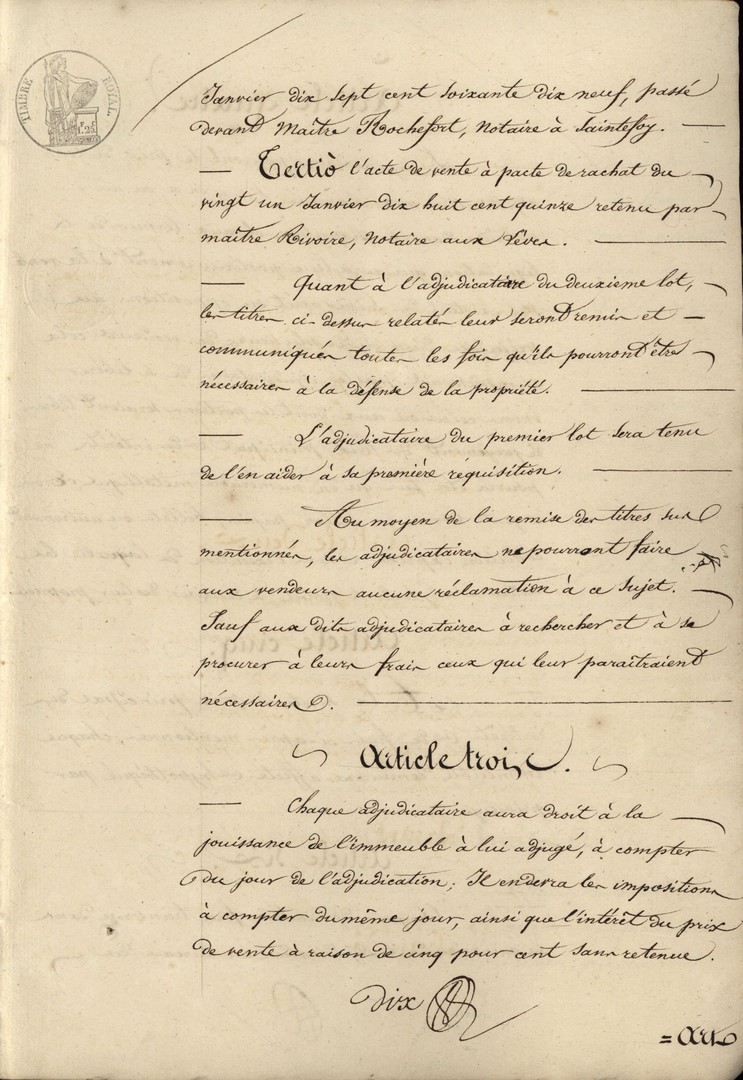 TIMBRE ROYAL
1F.25
Janvier dix sept cent soixante dix neuf, passé
devant Maître Rochefort, Notaire à Saintefoy. —
— Tertiò l'acte de vente à pacte de rachat du
vingt un Janvier dix huit cent quinze retenu par
maître Rivoire, Notaire aux Vêves. —
— Quant à l'adjudicataire du deuxieme lot,
les titres ci-dessus relatés leur seront remis et —
communiqués toutes les fois qu'ils pourront être
nécessaires à la défense de la propriété. —
— L'adjudicataire du premier lot sera tenu
de l'en aider à sa première réquisition. —
— Au moyen de la remise des titres sus
mentionnés, les adjudicataires ne pourront faire
aux vendeurs aucune réclamation à ce sujet. —
Sauf aux dits adjudicataires à rechercher et à se
procurer à leurs frais ceux qui leur paraîtraient
nécessaires. —
Article trois.
— Chaque adjudicataire aura droit à la —
jouissance de l'immeuble à lui adjugé, à compter
du jour de l'adjudication; Il en devra les impositions
à compter du même jour, ainsi que l'intérêt du prix
de vente à raison de cinq pour cent sans retenue.
dix
= Art